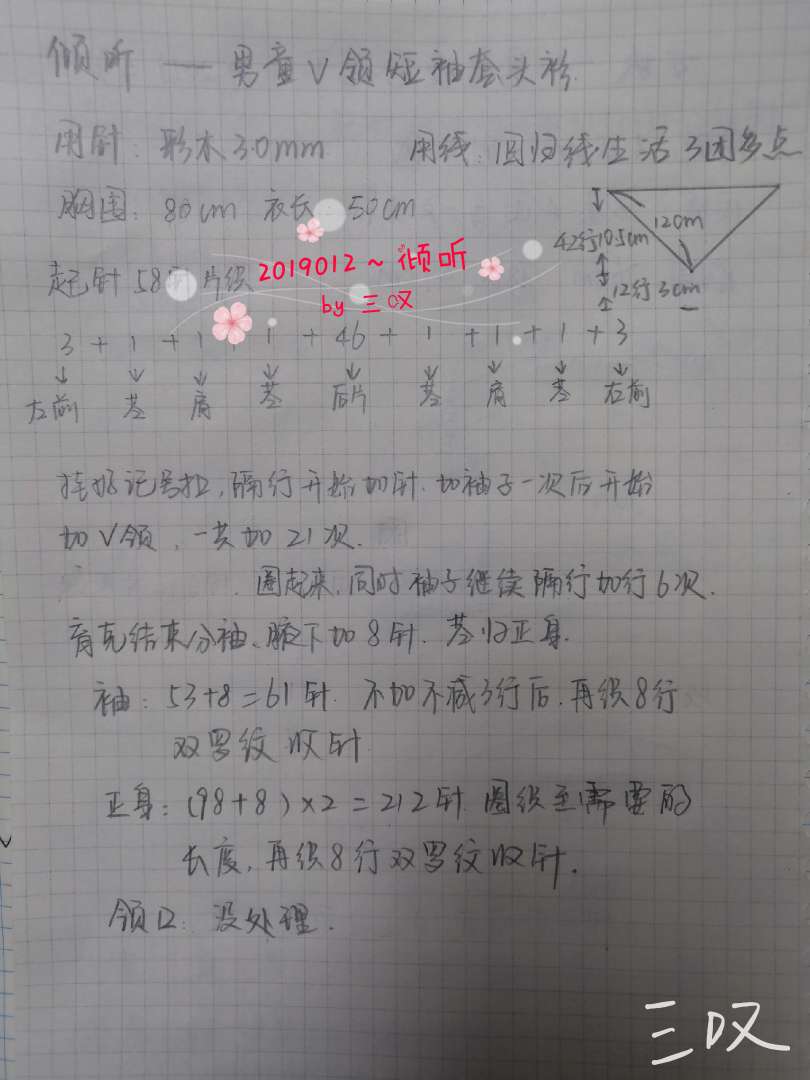 倾听 — 男童V领短袖套头衫
用针: 彩木3.0mm 用线: 回归线生活3团多点
胸围: 80cm 衣长 50cm
12cm
42行10.5cm
12行3cm
起针58针片织
2019012~倾听
by 三叹
3 + 1 + 1 + 1 + 46 + 1 + 1 + 1 + 3
左前 茎 肩 茎 后片 茎 肩 茎 右前
挂好记号扣,隔行开始加针.加袖子一次后开始
加V领,一共加21次.
圈起来,同时袖子继续隔行加行6次.
育克结束分袖、腋下加8针.茎归正身.
袖: 53+8=61针 不加不减3行后,再织8行
双罗纹收针
正身: (98+8)×2=212针 圈织至需要的
长度,再织8行双罗纹收针.
领口: 没处理.
三叹